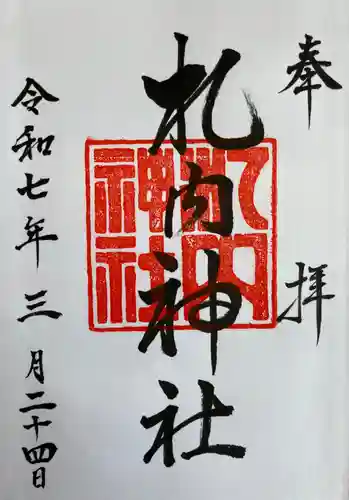 奉拝
札内神社
札内神社
令和七年三月二十四日